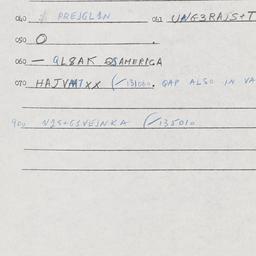 040 PREJGLSN 041 UNG3RAJS+T
050 O .
060 — QL8AK QSAMERICA
070 HAJVMTXX (✓131000. GAP ALSO IN VA
900 NJS+GSVEJNKA (✓135010